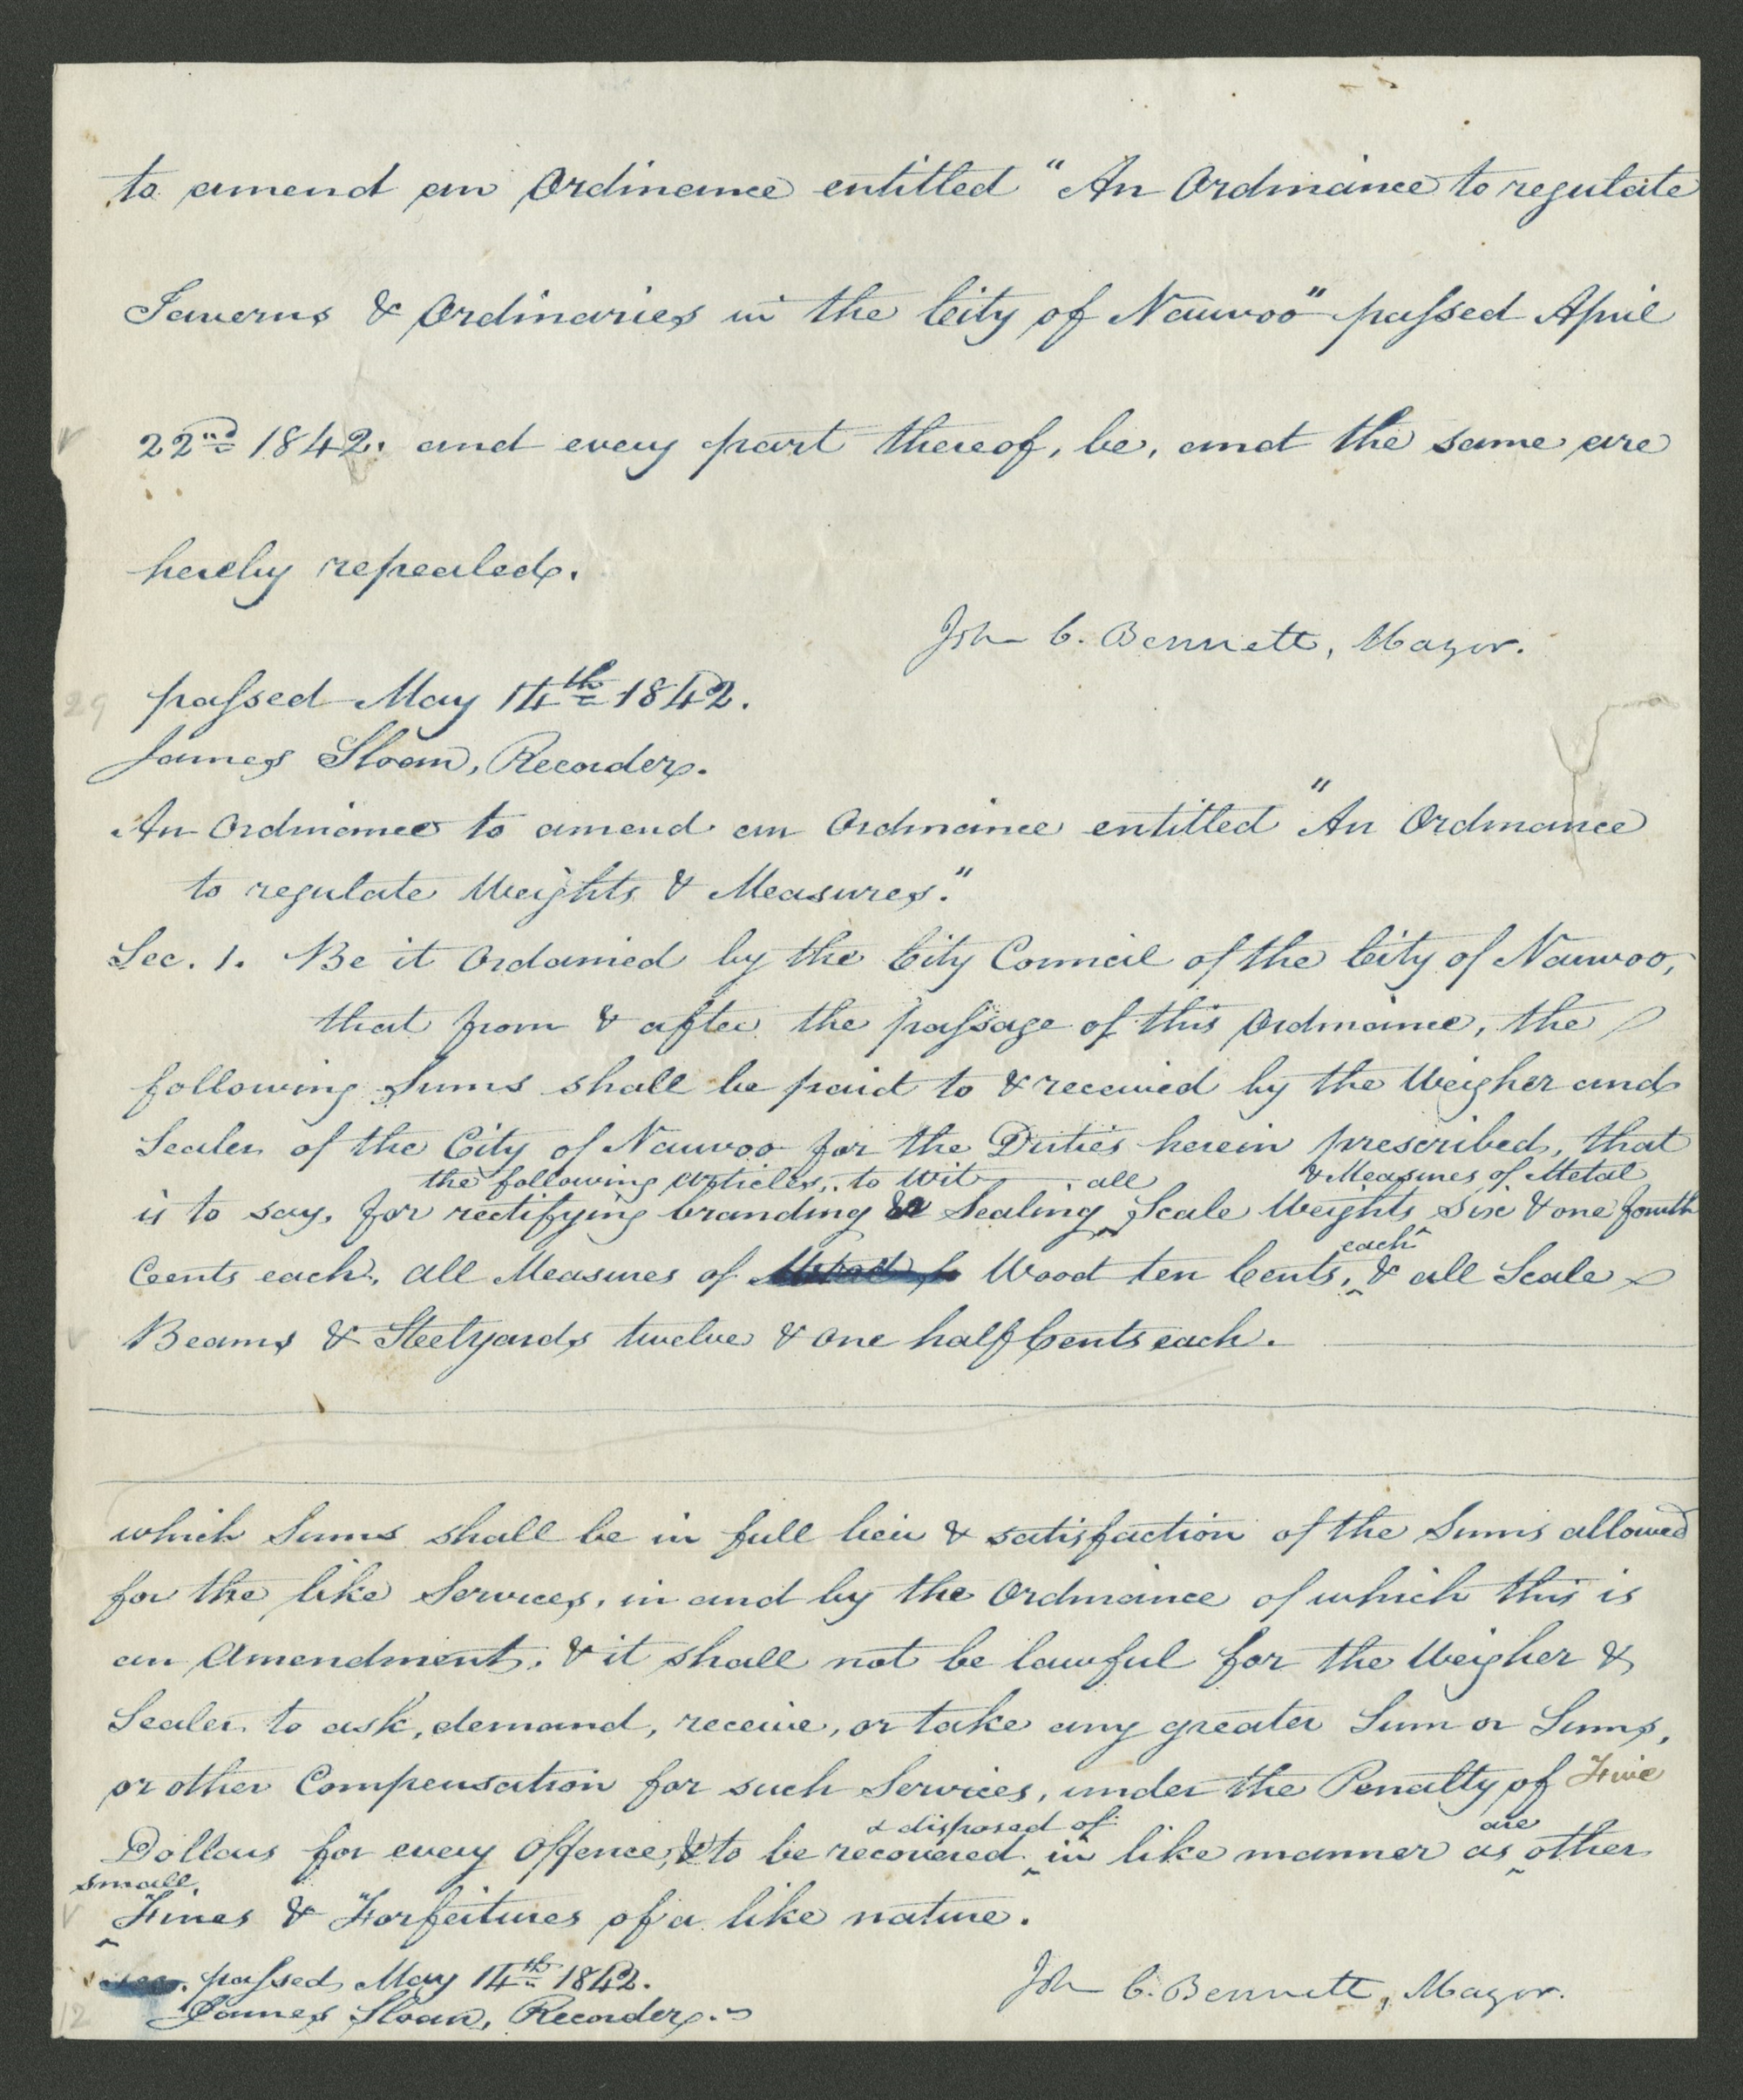 to amend an Ordinance entitled "An Ordinance to regulate
Taverns & Ordinaries in the City of Nauvoo" passed April
22nd 1842. and every part thereof, be, and the same are
hereby repealed.
John C. Bennett, Mayor.
29
passed May 14th 1842.
James Sloan, Recorder.
An Ordinance to amend an Ordinance entitled "An Ordinance
to regulate Weights & Measures."
Sec. 1. Be it Ordained by the City Council of the City of Nauvoo,
that from & after the passage of this Ordinance, the
following Sums shall be paid to & received by the Weigher and
Sealer of the City of Nauvoo for the Duties herein prescribed, that
the following Articles, to Wit all & Measures of Metal
is to say, for rectifying branding & Sealing Scale Weights Six & one fourth
each
Cents each, all Measures of Wood ten Cents, & all Scale
Beams & Steelyards twelve & one half Cents each.
which Sums shall be in full lieu & satisfaction of the Sums allowed
for the like Services, in and by the Ordinance of which this is
an Amendment, & it shall not be lawful for the Weigher &
Sealer to ask, demand, receive, or take any greater Sum or Sums,
or other Compensation for such Services, under the Penalty of Five
& disposed of are
Dollars for every Offence, & to be recovered in like manner as other
small
Fines & Forfeitures of a like nature.
passed May 14th 1842.
John C. Bennett, Mayor.
12
James Sloan, Recorder.